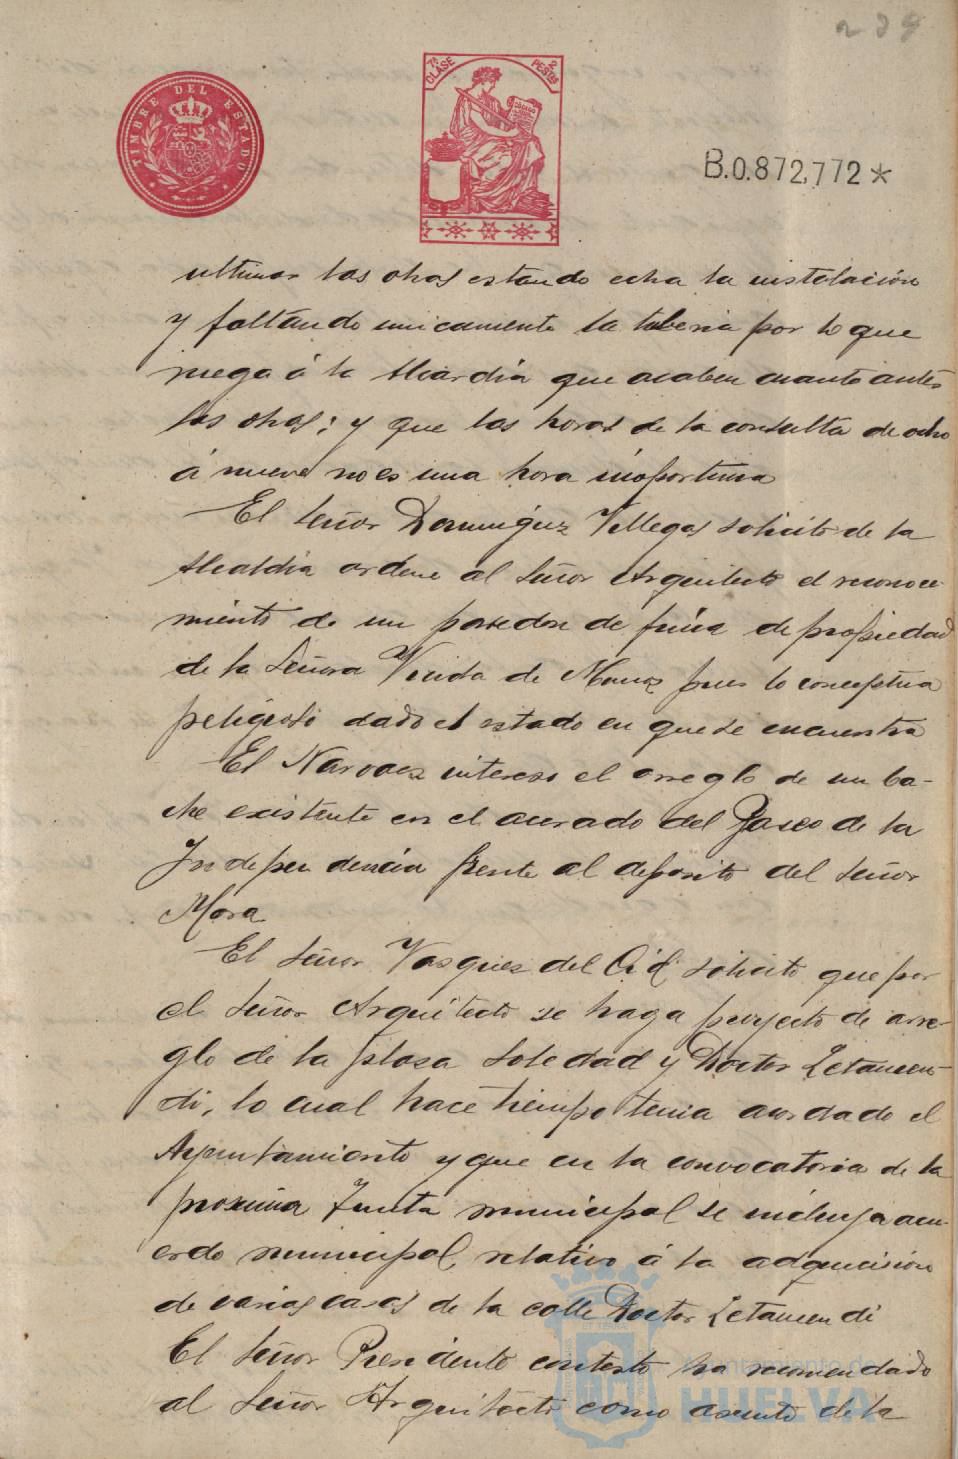 239
TIMBRE DEL ESTADO
7ª CLASE 2 PESTAS
B.0.872,772*
ultimar las obras estando echa la instalación
y faltando unicamente la tuberia por lo que
ruega á la Alcardia que acaben cuanto antes
las obras; y que las horas de la consulta de ocho
á nueve no es una hora inoportuna
El Señor Dominguez Villegas solicitó de la
Alcaldia ordene al Señor Arquitecto el reconoci-
miento de un paredon de finca de propiedad
de la Señora Viuda de pues lo conceptua
peligroso dado el estado en que se encuentra
El Narvaez intereso el arreglo de un ba-
che existente en el acerado del Paseo de la
Independencia frente al deposito del Señor
Mora
El Señor Vasques del Cid solicito que por
el Señor Arquitecto se haga proyecto de arre-
glo de la plasa Soledad y Doctor Letamen-
di, lo cual hace tiempo tenia acordado el
Ayuntamiento y que en la convocatoria de la
proxima Junta municipal se incluya acu-
erdo municipal, relativo á la adquicisión
de varias casas de la calle Doctor Letamendi
El Señor Presidente contesto ha recomendado
al Señor Arquitecto como asunto de la
Ayuntamiento de
HUELVA